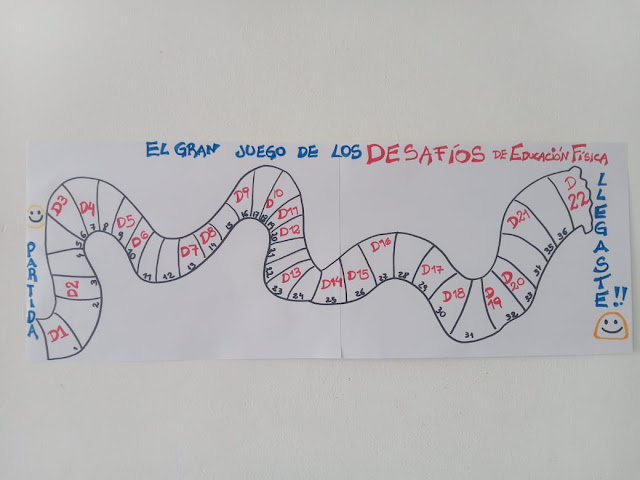 EL GRAN JUEGO DE LOS DESAFÍOS DE EDUCACIÓN FÍSICA
PARTIDA
D1
1
2
D2
3
4
D3
5
6
D4
7
8
D5
9
D6
10
11
12
D7
13
D8
14
15
D9
16
17
D10
18
D11
19
D12
20
21
22
D13
23
24
D14
25
D15
26
D16
27
28
D17
29
D18
30
31
D19
32
D20
33
34
D21
35
36
D22
LLEGASTE!!